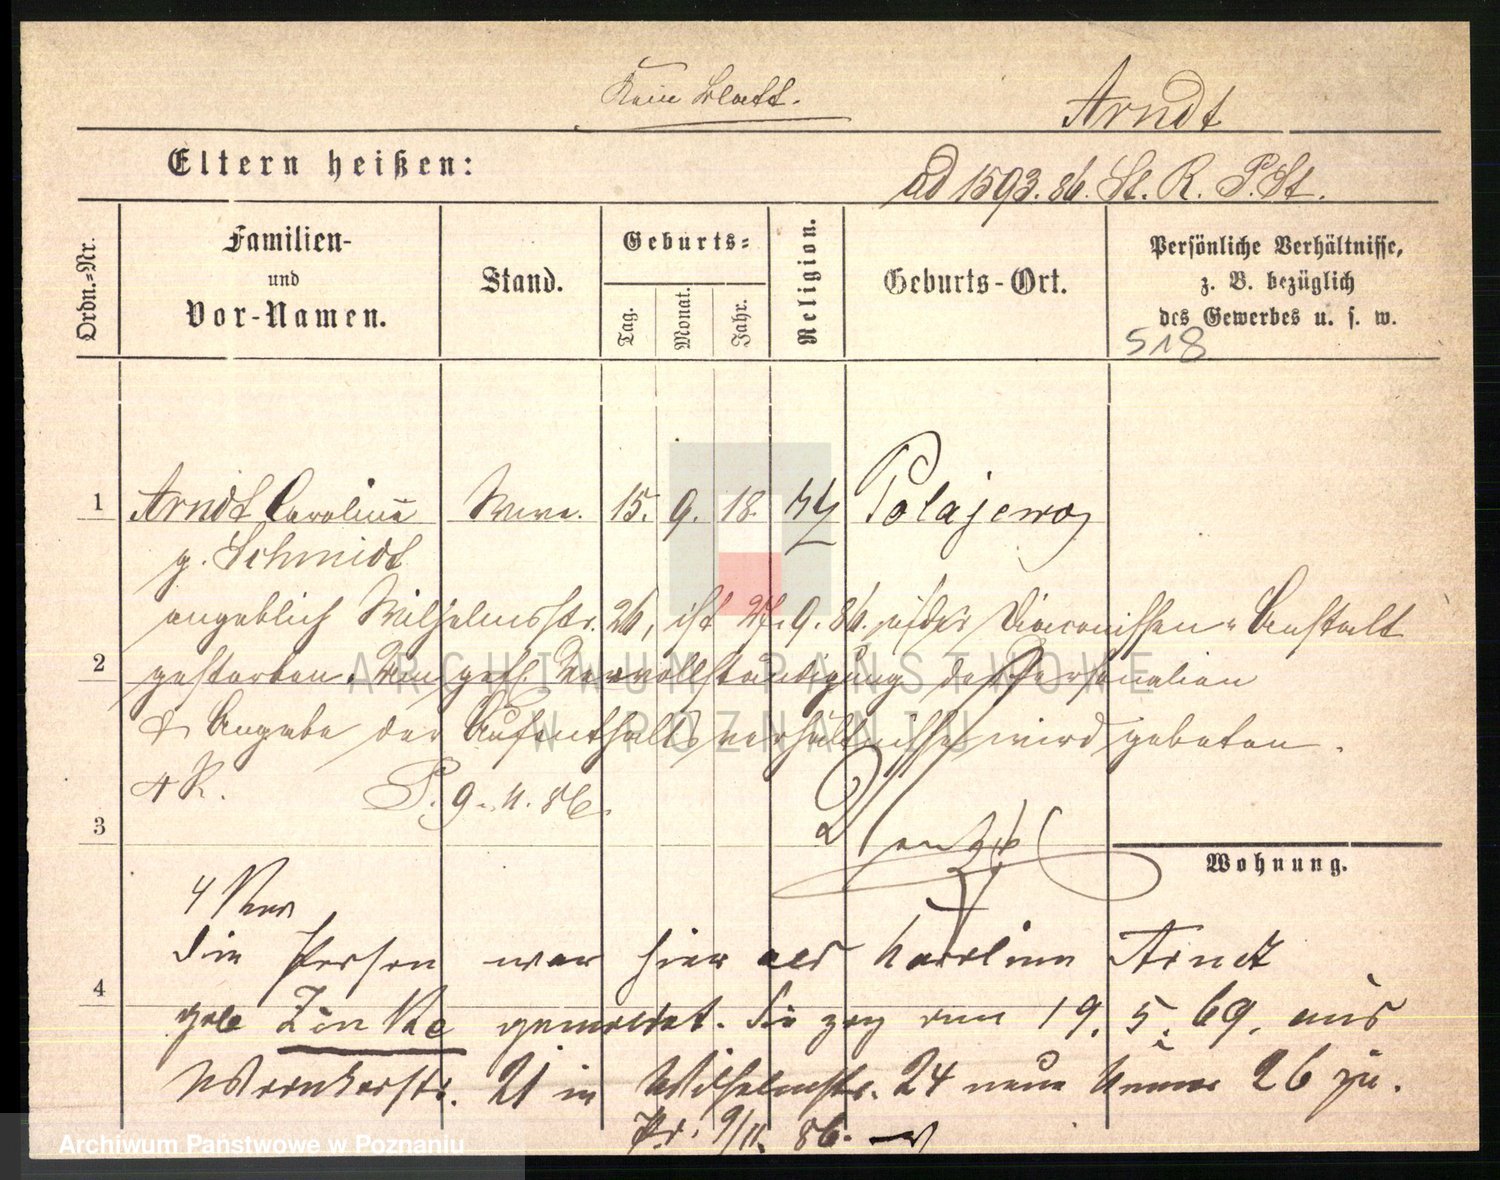 Kein Blatt.
Arndt
Eltern heißen:
ad 1593. 86. St. R. P. St.
Ordn.-Nr.
Familien-
und
Vor-Namen.
Stand.
Geburts-
Tag.
Monat.
Jahr.
Religion.
Geburts-Ort.
Persönliche Verhältnisse,
z. B. bezüglich
des Gewerbes u. s. w.
518
1 Arndt Caroline Wwe. 15. 9. 18. Polajewo
g. Schmidt
angeblich Wilhelmsstr. 26, ist 27. 9. 86. in der Diaconissen-Anstalt
2 gestorben. Um gefl. Vervollständigung der Personalien
& Angabe der Aufenthaltsverhältnisse wird gebeten.
4 R. P. 9. 11. 86.
3
Wohnung.
4 Rev
Die Person war hier als Karoline Arndt
4 geb Zinke gemeldet. Sie zog am 19. 5. 69. aus
21 in Wilhelmstr. 24 neue Numer 26 zu.
Ps. 9/11. 86.
ARCHIWUM PAŃSTWOWE
W POZNANIU
Archiwum Państwowe w Poznaniu